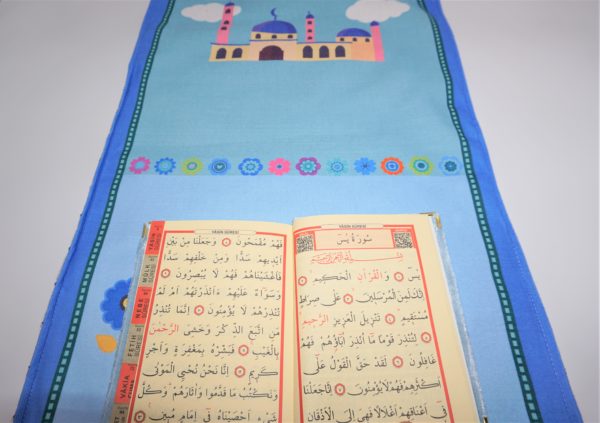 YÂSİN SÛRESİ
سُورَةُ يٰسٓ
بِسْمِ اللّٰهِ الرَّحْمٰنِ الرَّحِيمِ
يٰسٓ وَالْقُرْاٰنِ الْحَكِيمِ
اِنَّكَ لَمِنَ الْمُرْسَلِينَ عَلٰى صِرَاطٍ
مُسْتَقِيمٍ تَنْزِيلَ الْعَزِيزِ الرَّحِيمِ
لِتُنْذِرَ قَوْمًا مَٓا اُنْذِرَ اٰبَٓاؤُهُمْ فَهُمْ
غَافِلُونَ لَقَدْ حَقَّ الْقَوْلُ عَلٰٓى
اَكْثَرِهِمْ فَهُمْ لَا يُؤْمِنُونَ اِنَّا جَعَلْنَا
فِٓى اَعْنَاقِهِمْ اَغْلَالًا فَهِىَ اِلَى الْاَذْقَانِ
YÂSİN SÛRESİ
فَهُمْ مُقْمَحُونَ وَجَعَلْنَا مِنْ بَيْنِ
اَيْدِيهِمْ سَدًّا وَمِنْ خَلْفِهِمْ سَدًّا
فَاَغْشَيْنَاهُمْ فَهُمْ لَا يُبْصِرُونَ
وَسَوَٓاءٌ عَلَيْهِمْ ءَاَنْذَرْتَهُمْ اَمْ لَمْ
تُنْذِرْهُمْ لَا يُؤْمِنُونَ اِنَّمَا تُنْذِرُ
مَنِ اتَّبَعَ الذِّكْرَ وَخَشِىَ الرَّحْمٰنَ
بِالْغَيْبِ فَبَشِّرْهُ بِمَغْفِرَةٍ وَاَجْرٍ
كَرِيمٍ اِنَّا نَحْنُ نُحْىِ الْمَوْتٰى
وَنَكْتُبُ مَا قَدَّمُوا وَاٰثَارَهُمْ وَكُلَّ
شَىْءٍ اَحْصَيْنَاهُ فِٓى اِمَامٍ مُبِينٍ
YASİN
MÜLK
NEBE
FETİH
VÂKIA